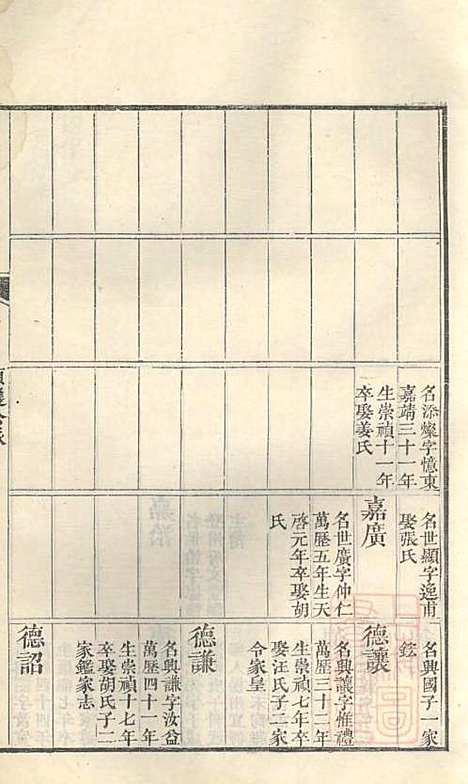 名添燦字憶東
嘉靖三十一年
生崇禎十一年
卒娶姜氏
名世顯字逸甫
娶張氏
嘉廣
名世廣字仲仁
萬歷五年生天
啓元年卒娶胡
氏
名興國子一家
鉉
德讓
名興讓字惟禮
萬歷三十二年
生崇禎七年卒
娶汪氏子二家
令家皇
德謙
名興謙字汝益
萬歷四十一年
生崇禎十七年
卒娶胡氏子二
家鑑家志
德詔